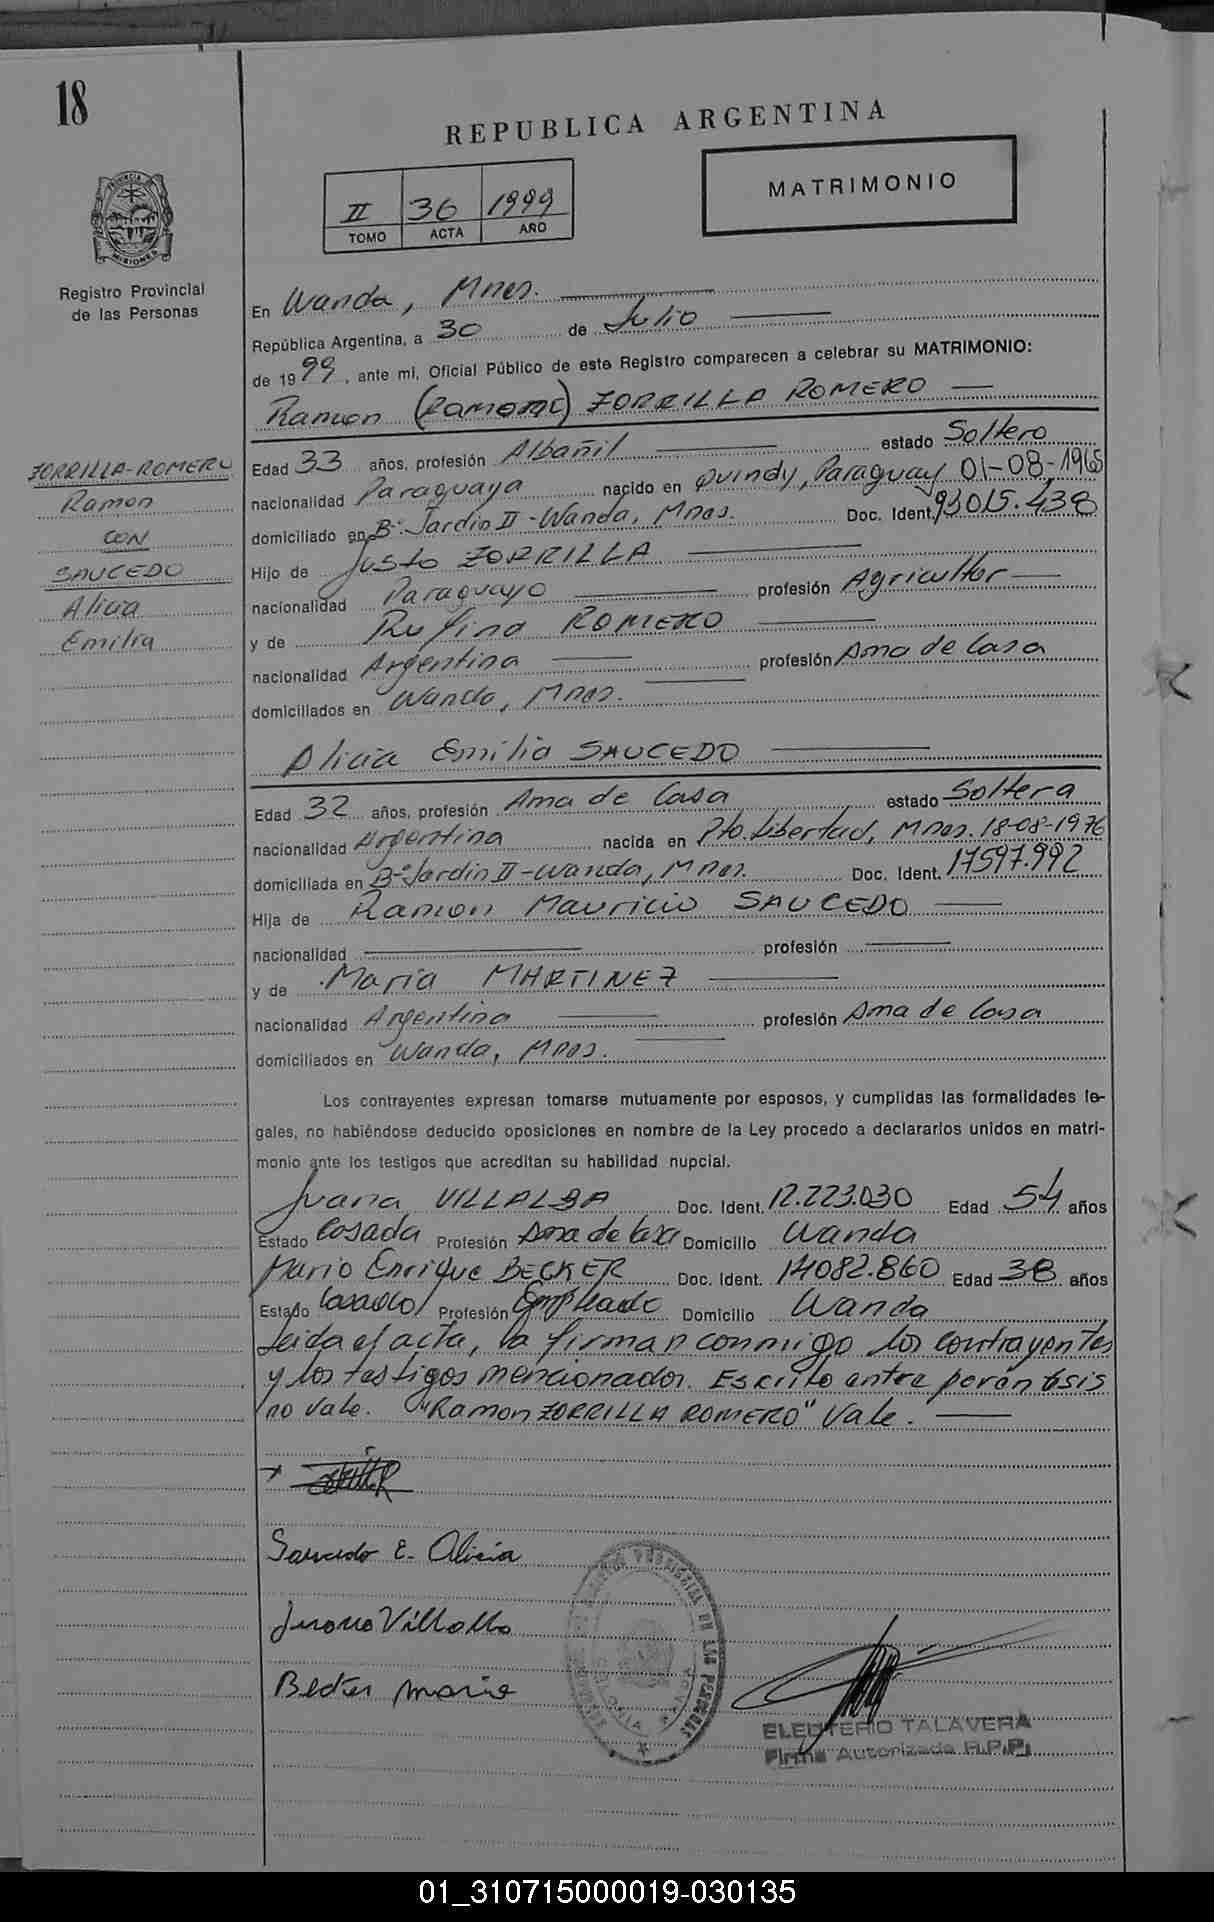 18
REPUBLICA ARGENTINA
MATRIMONIO
II 36 1999
TOMO ACTA AÑO
PROVINCIA
MISIONES
Registro Provincial
de las Personas
En Wanda, Mnes.
República Argentina, a 30 de Julio
de 1999, ante mi, Oficial Público de este Registro comparecen a celebrar su MATRIMONIO:
Ramon (Ramon) ZORRILLA ROMERO
ZORRILLA-ROMERO
Ramon
CON
SAUCEDO
Alicia
Emilia
Edad 33 años, profesión Albañil estado Soltero
nacionalidad Paraguaya nacido en Quindy, Paraguay 01-08-1965
domiciliado en Bº Jardin II - Wanda, Mnes. Doc. Ident. 93015.438
Hijo de Justo ZORRILLA
nacionalidad Paraguayo profesión Agricultor
y de Rufina ROMERO
nacionalidad Argentina profesión Ama de Casa
domiciliados en Wanda, Mnes.
Alicia Emilia SAUCEDO
Edad 32 años, profesión Ama de Casa estado Soltera
nacionalidad Argentina nacida en Pto. Libertad, Mnes. 18-08-1976
domiciliada en Bº Jardin II - Wanda, Mnes. Doc. Ident. 17597.992
Hija de Ramon Mauricio SAUCEDO
nacionalidad profesión
y de Maria MARTINEZ
nacionalidad Argentina profesión Ama de Casa
domiciliados en Wanda, Mnes.
Los contrayentes expresan tomarse mutuamente por esposos, y cumplidas las formalidades le-
gales, no habiéndose deducido oposiciones en nombre de la Ley procedo a declararlos unidos en matri-
monio ante los testigos que acreditan su habilidad nupcial.
Juana VILLALBA Doc. Ident. 12.223.030 Edad 54 años
Estado Casada Profesión Ama de Casa Domicilio Wanda
Mario Enrique BECKER Doc. Ident. 14082.860 Edad 38 años
Estado Casado Profesión Empleado Domicilio Wanda
Leida el acta, la firman conmigo los contrayentes
y los testigos mencionados. Escrito entre parentesis
no vale. "Ramon ZORRILLA ROMERO" Vale.
Saucedo E. Alicia
Juana Villalba
Becker Mario
ELEUTERIO TALAVERA
Firma Autorizada R.P.P.
01_310715000019-030135